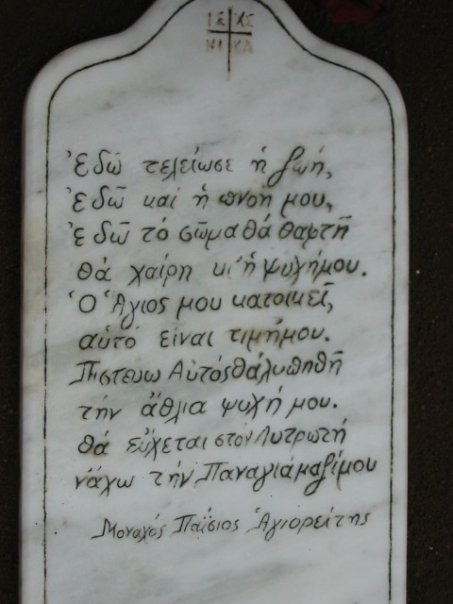 ΙΣ ΧΣ
ΝΙ ΚΑ
Ἐδῶ τελείωσε ἡ ζωή,
ἐδῶ καί ἡ πνοή μου,
ἐδῶ τό σῶμα θά θαφτῆ
θά χαίρη κι' ἡ ψυχή μου.
Ὁ Ἅγιος μου κατοικεῖ,
αὐτό εἶναι τιμή μου.
Πιστεύω Αὐτός θά λυπηθῆ
τήν ἄθλια ψυχή μου.
Θά εὔχεται στόν Λυτρωτή
νἄχω τήν Παναγιά μαζί μου
Μοναχός Παΐσιος Ἁγιορείτης